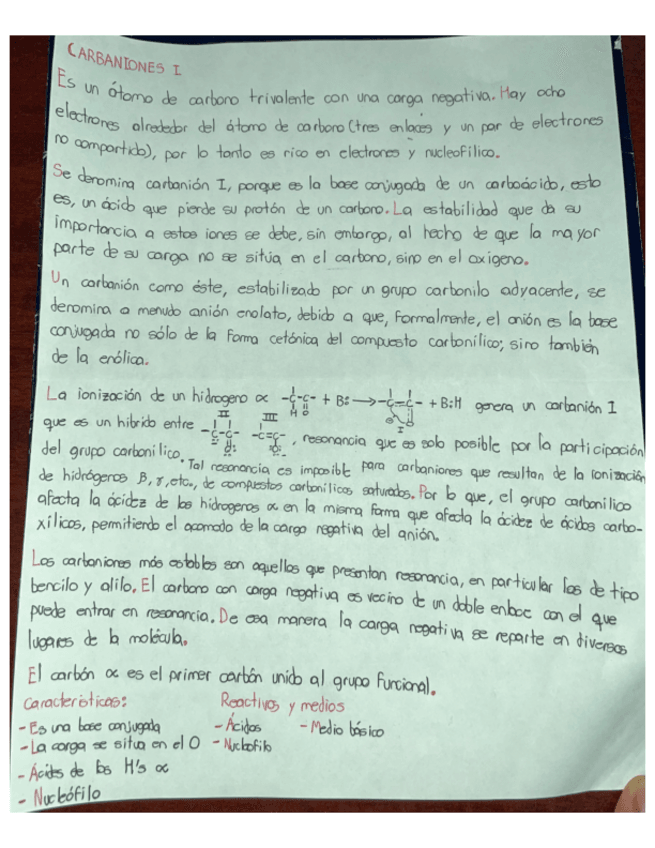 CARBANIONES I
Es un átomo de carbono trivalente con una carga negativa. Hay ocho
electrones alrededor del átomo de carbono (tres enlaces y un par de electrones
no compartido), por lo tanto es rico en electrones y nucleofílico.
Se denomina carbanión I, porque es la base conjugada de un carboácido, esto
es, un ácido que pierde su protón de un carbono. La estabilidad que da su
importancia a estos iones se debe, sin embargo, al hecho de que la mayor
parte de su carga no se sitúa en el carbono, sino en el oxígeno.
Un carbanión como éste, estabilizado por un grupo carbonilo adyacente, se
denomina a menudo anión enolato, debido a que, formalmente, el anión es la base
conjugada no sólo de la forma cetónica del compuesto carbonílico; sino también
de la enólica.
La ionización de un hidrogeno α -C-C- + B: → -C=C- + B:H genera un carbanión I
H O I
II III
que es un hibrido entre -C-C- -C=C-, resonancia que es solo posible por la participación
del grupo carbonilico. Tal resonancia es imposible para carbaniones que resultan de la ionización
de hidrógenos β, γ, etc., de compuestos carbonílicos saturados. Por lo que, el grupo carbonilico
afecta la ácidez de los hidrogenos α en la misma forma que afecta la ácidez de ácidos carbo-
xílicos, permitiendo el acomodo de la carga negativa del anión.
Los carbaniones más estables son aquellos que presentan resonancia, en particular los de tipo
bencilo y alilo. El carbono con carga negativa es vecino de un doble enlace con el que
puede entrar en resonancia. De esa manera la carga negativa se reparte en diversos
lugares de la molécula.
El carbón α es el primer carbón unido al grupo funcional.
Características: Reactivos y medios
- Es una base conjugada - Ácidos - Medio básico
- La carga se situa en el O - Nucleofilo
- Ácides de los H's α
- Nucleófilo